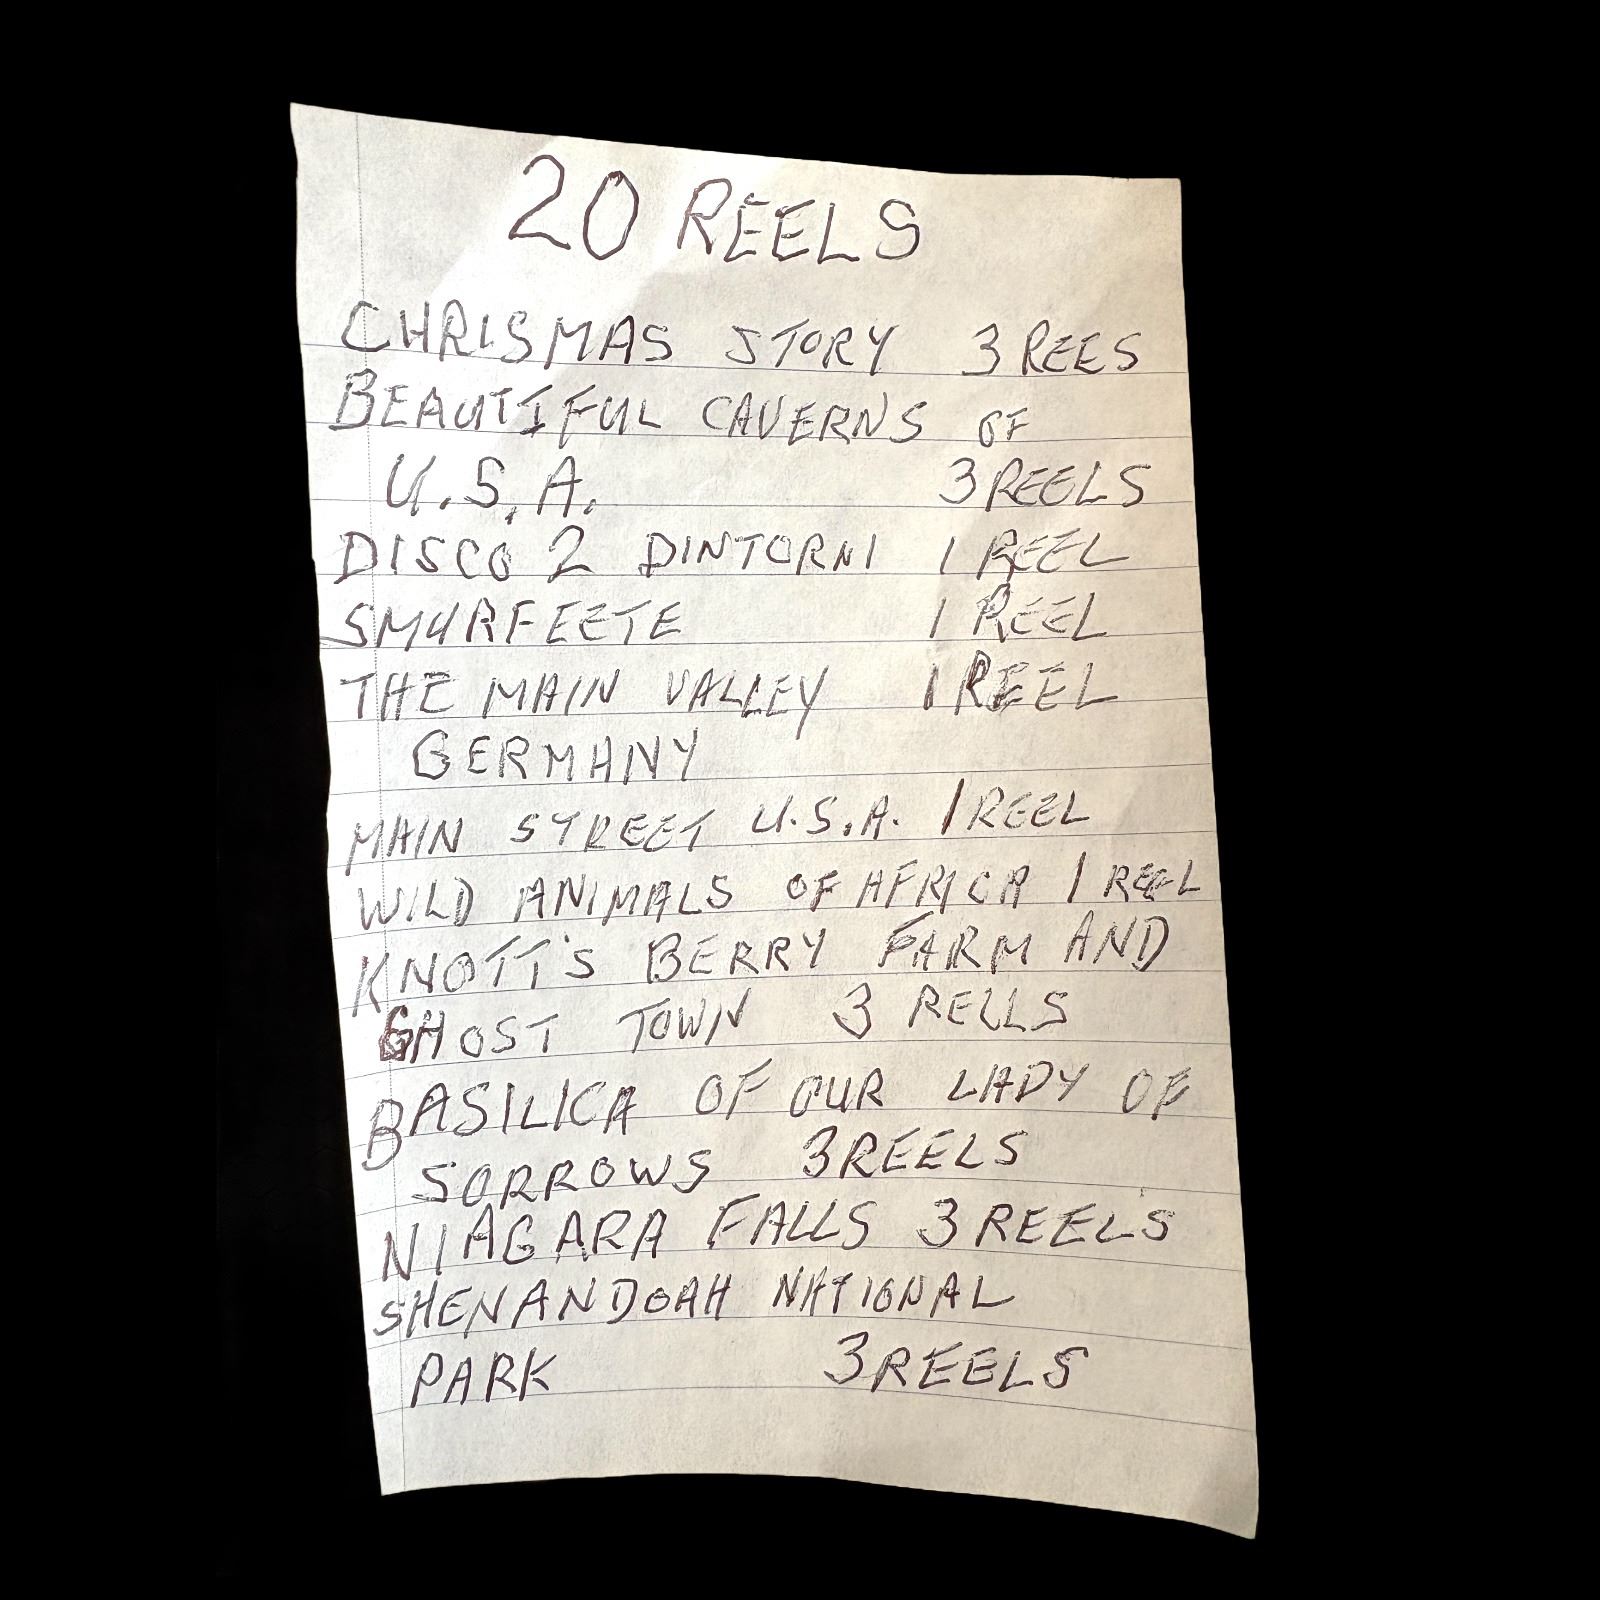 20 REELS
CHRISMAS STORY 3 REES
BEAUTIFUL CAVERNS OF
U.S.A. 3 REELS
DISCO 2 DINTORNI 1 REEL
SMURFEETE 1 REEL
THE MAIN VALLEY 1 REEL
GERMANY
MAIN STREET U.S.A. 1 REEL
WILD ANIMALS OF AFRICA 1 REEL
KNOTT'S BERRY FARM AND
GHOST TOWN 3 RELLS
BASILICA OF OUR LADY OF
SORROWS 3 REELS
NIAGARA FALLS 3 REELS
SHENANDOAH NATIONAL
PARK 3 REELS